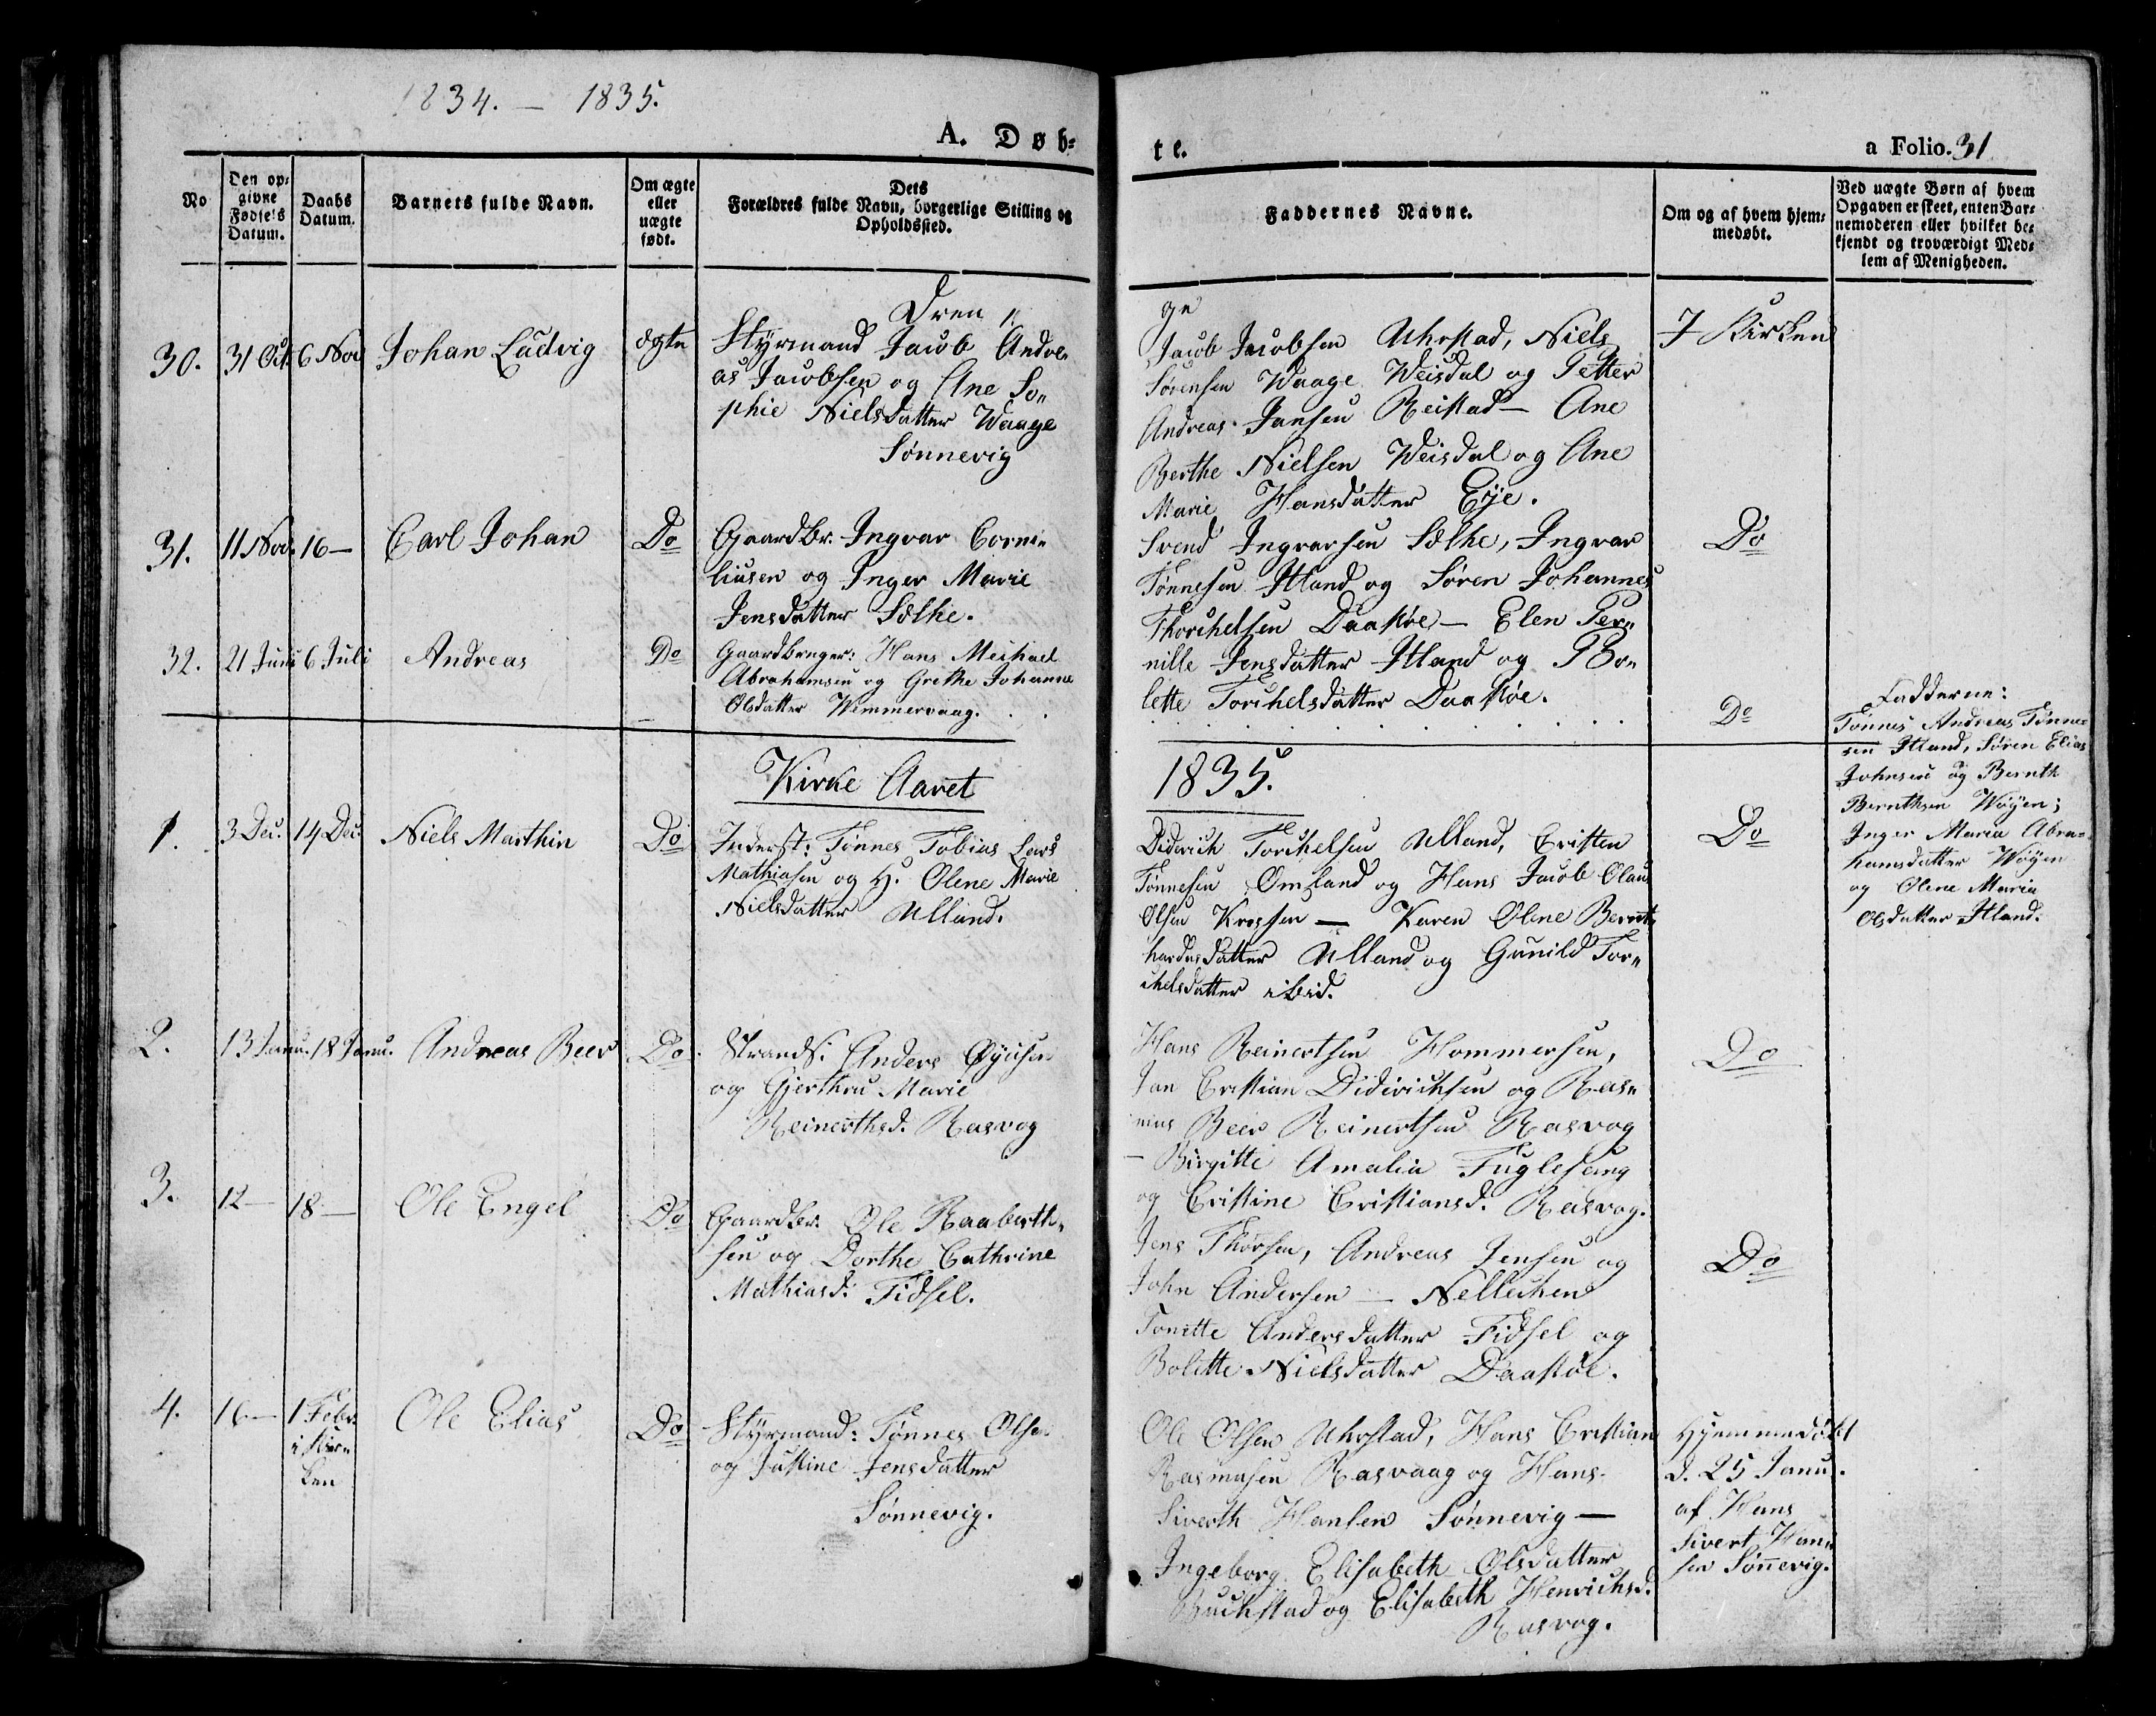 1834. — 1835.
A. Døb=
te.
a Folio. 31
No
Den op=
givne
Fødsels
Datum.
Daabs
Datum.
Barnets fulde Navn.
Om ægte
eller
uægte
født.
Dets
Forældres fulde Navn, borgerlige Stilling og
Opholdssted.
Faddernes Navne.
Om og af hvem hjem=
medøbt.
Ved uægte Børn af hvem
Opgaven er skeet, enten Bar=
nemoderen eller hvilket be=
kjendt og troværdigt Med=
lem af Menigheden.
Dren„
ge
30. 31 Oct. 6 Nov Johan Ludvig ægte
Styrmand Jacob Andre„
as Jacobsen og Ane So„
phie Nielsdatter Waage
Sønnevig
Jacob Jacobsen Uhrstad, Niels
Sørensen Waage Weisdal og Petter
Andreas Jansen Reistad — Ane
Berthe Nielsen Weisdal og Ane
Marie Hansdatter Eije.
I Kirken
31. 11 Nov. 16 — Carl Johan Do
Gaardbr. Ingvar Corne„
liusen og Inger Marie
Jensdatter Sælhe.
Svend Ingvarsen Sælhe, Ingvar
Tønnesen Itland og Søren Johannes
Thorchelsen Daaskøe — Elen Per„
nille Jensdatter Itland og Bo„
lette Torchelsdatter Daaskøe.
Do
32. 21 Juni 6 Juli Andreas Do
Gaardbruger: Hans Meihael
Abrahamsen og Grethe Johanne
Olsdatter Wemmervaag.
Do
Fadderne:
Tønnes Andreas Tønne=
sen Itland, Søren Elias
Johnsen og Bernth
Bernthsen Wøyen;
Inger Maria Abra=
hamsdatter Wøyen
og Olene Maria
Olsdatter Itland.
Kirke Aaret
1835.
1. 3 Dec. 14 Dec. Niels Marthin Do
Inderst: Tønnes Tobias Lars
Mathiasen og H. Olene Marie
Nielsdatter Ulland.
Diderich Torchelsen Ulland, Cristen
Tønnesen Omland og Hans Jacob Olaus
Olsen Krossen — Karen Olene Bernt„
hardusdatter Ulland og Gunild Tor„
chelsdatter ibid.
Do
2. 13 Janu. 18 Janu. Andreas Beer Do
Strands: Anders Øyusen
og Gjerthru Marie
Reinerthsd. Rasvog
Hans Reinertsen Hommersen,
Jan Cristian Diderichsen og Ras„
mus Beer Reinertsen Rasvog
— Birgitte Amalia Fuglesang
og Cristine Cristiansd. Rasvog.
Do
3. 12 — 18 — Ole Engel Do
Gaardbr. Ole Raaberth„
sen og Dorthe Cathrine
Mathiasd: Fidsel.
Jens Thorsen, Andreas Jensen og
John Andersen — Nellechen
Tonette Andersdatter Fidsel og
Bolette Nielsdatter Daaskøe.
Do
4. 16 — 1 Febr. Ole Elias Do
i Kir„
ken
Styrmand: Tønnes Olsen
og Justine Jensdatter
Sønnevig.
Ole Olsen Uhrstad, Hans Cristian
Rasmusen Rasvaag og Hans
Siverth Hansen Sønnevig —
Ingeborg Elisabeth Olsdatter
Buchstad og Elisabeth Henrichsd.
Rasvog.
Hjemmedøbt
d. 25 Janu.
af Hans
Sivert Han„
sen Sønnevig.